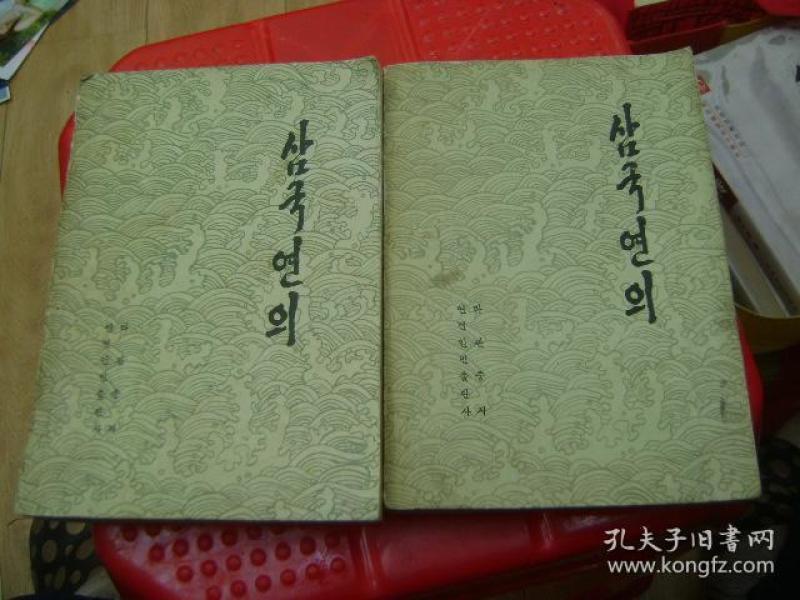 삼국연의
라관중 저
연변인민출판사
삼국연의
라관중 저
연변인민출판사
孔夫子旧书网
www.kongfz.com